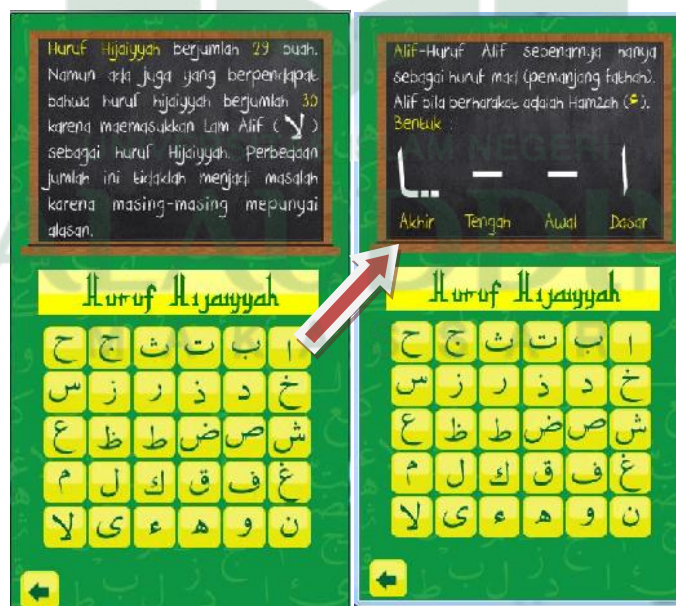 Huruf Hijaiyyah berjumlah 29 buah.
Namun ada juga yang berpendapat
bahwa huruf hijaiyyah berjumlah 30
karena maemasukkan Lam Alif ( لا )
sebagai huruf Hijaiyyah. Perbedaan
jumlah ini tidaklah menjadi masalah
karena masing-masing mepunyai
alasan.
Huruf Hijaiyyah
ا ب ت ث ج ح
خ د ذ ر ز س
ش ص ض ط ظ ع
غ ف ق ك ل م
ن و ه ء ى لا
Alif-Huruf Alif sebenarnya hanya
sebagai huruf mad (pemanjang fathah).
Alif bila berharakat adalah Hamzah (ء).
Bentuk :
ا — — ـا
Akhir Tengah Awal Dasar
Huruf Hijaiyyah
ا ب ت ث ج ح
خ د ذ ر ز س
ش ص ض ط ظ ع
غ ف ق ك ل م
ن و ه ء ى لا